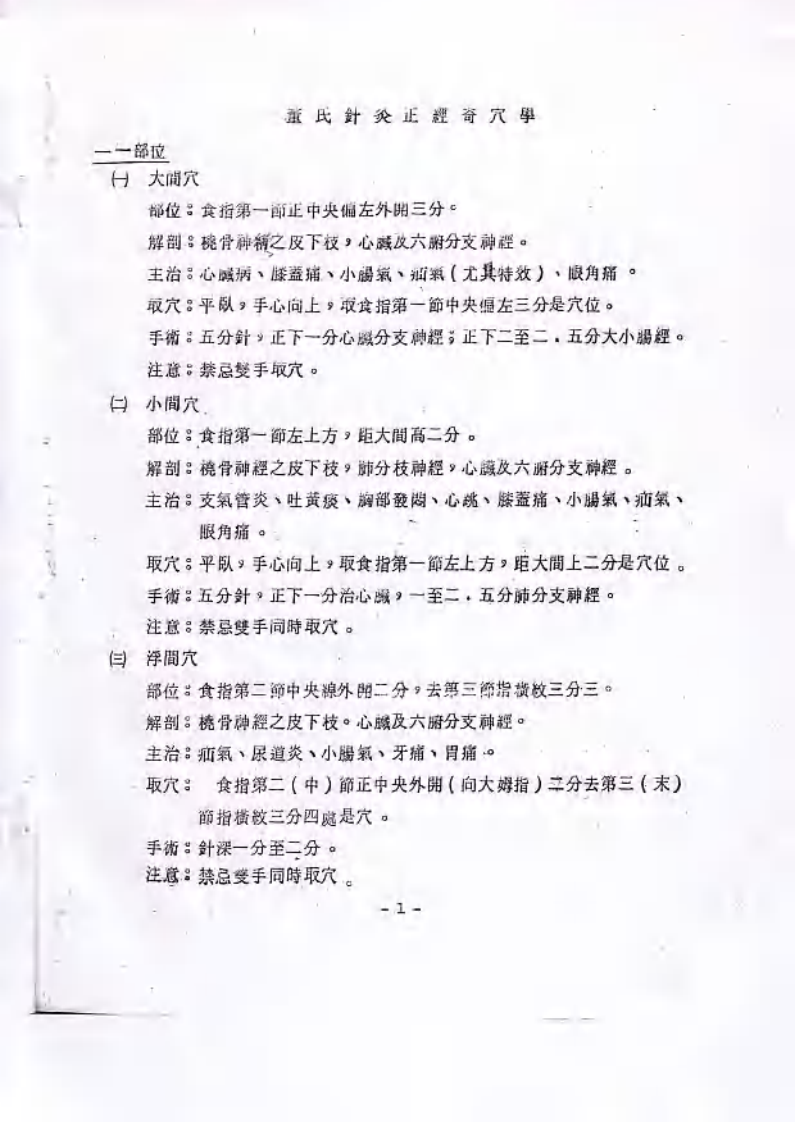 董氏針灸正經奇穴學
一一部位
㈠ 大間穴
部位：食指第一節正中央偏左外開三分。
解剖：橈骨神經之皮下枝，心臟及六腑分支神經。
主治：心臟病、膝蓋痛、小腸氣、疝氣(尤其特效)、眼角痛。
取穴：平臥，手心向上，取食指第一節中央偏左三分是穴位。
手術：五分針，正下一分心臟分支神經；正下二至二．五分大小腸經。
注意：禁忌雙手取穴。
㈡ 小間穴
部位：食指第一節左上方，距大間高二分。
解剖：橈骨神經之皮下枝，肺分枝神經，心臟及六腑分支神經。
主治：支氣管炎、吐黃痰、胸部發悶、心跳、膝蓋痛、小腸氣、疝氣、
眼角痛。
取穴：平臥，手心向上，取食指第一節左上方，距大間上二分是穴位。
手術：五分針，正下一分治心臟，一至二．五分肺分支神經。
注意：禁忌雙手同時取穴。
㈢ 浮間穴
部位：食指第二節中央線外開二分，去第三節指橫紋三分三。
解剖：橈骨神經之皮下枝。心臟及六腑分支神經。
主治：疝氣、尿道炎、小腸氣、牙痛、胃痛。
取穴： 食指第二(中)節正中央外開(向大姆指)二分去第三(末)
節指橫紋三分四處是穴。
手術：針深一分至二分。
注意：禁忌雙手同時取穴。
- 1 -